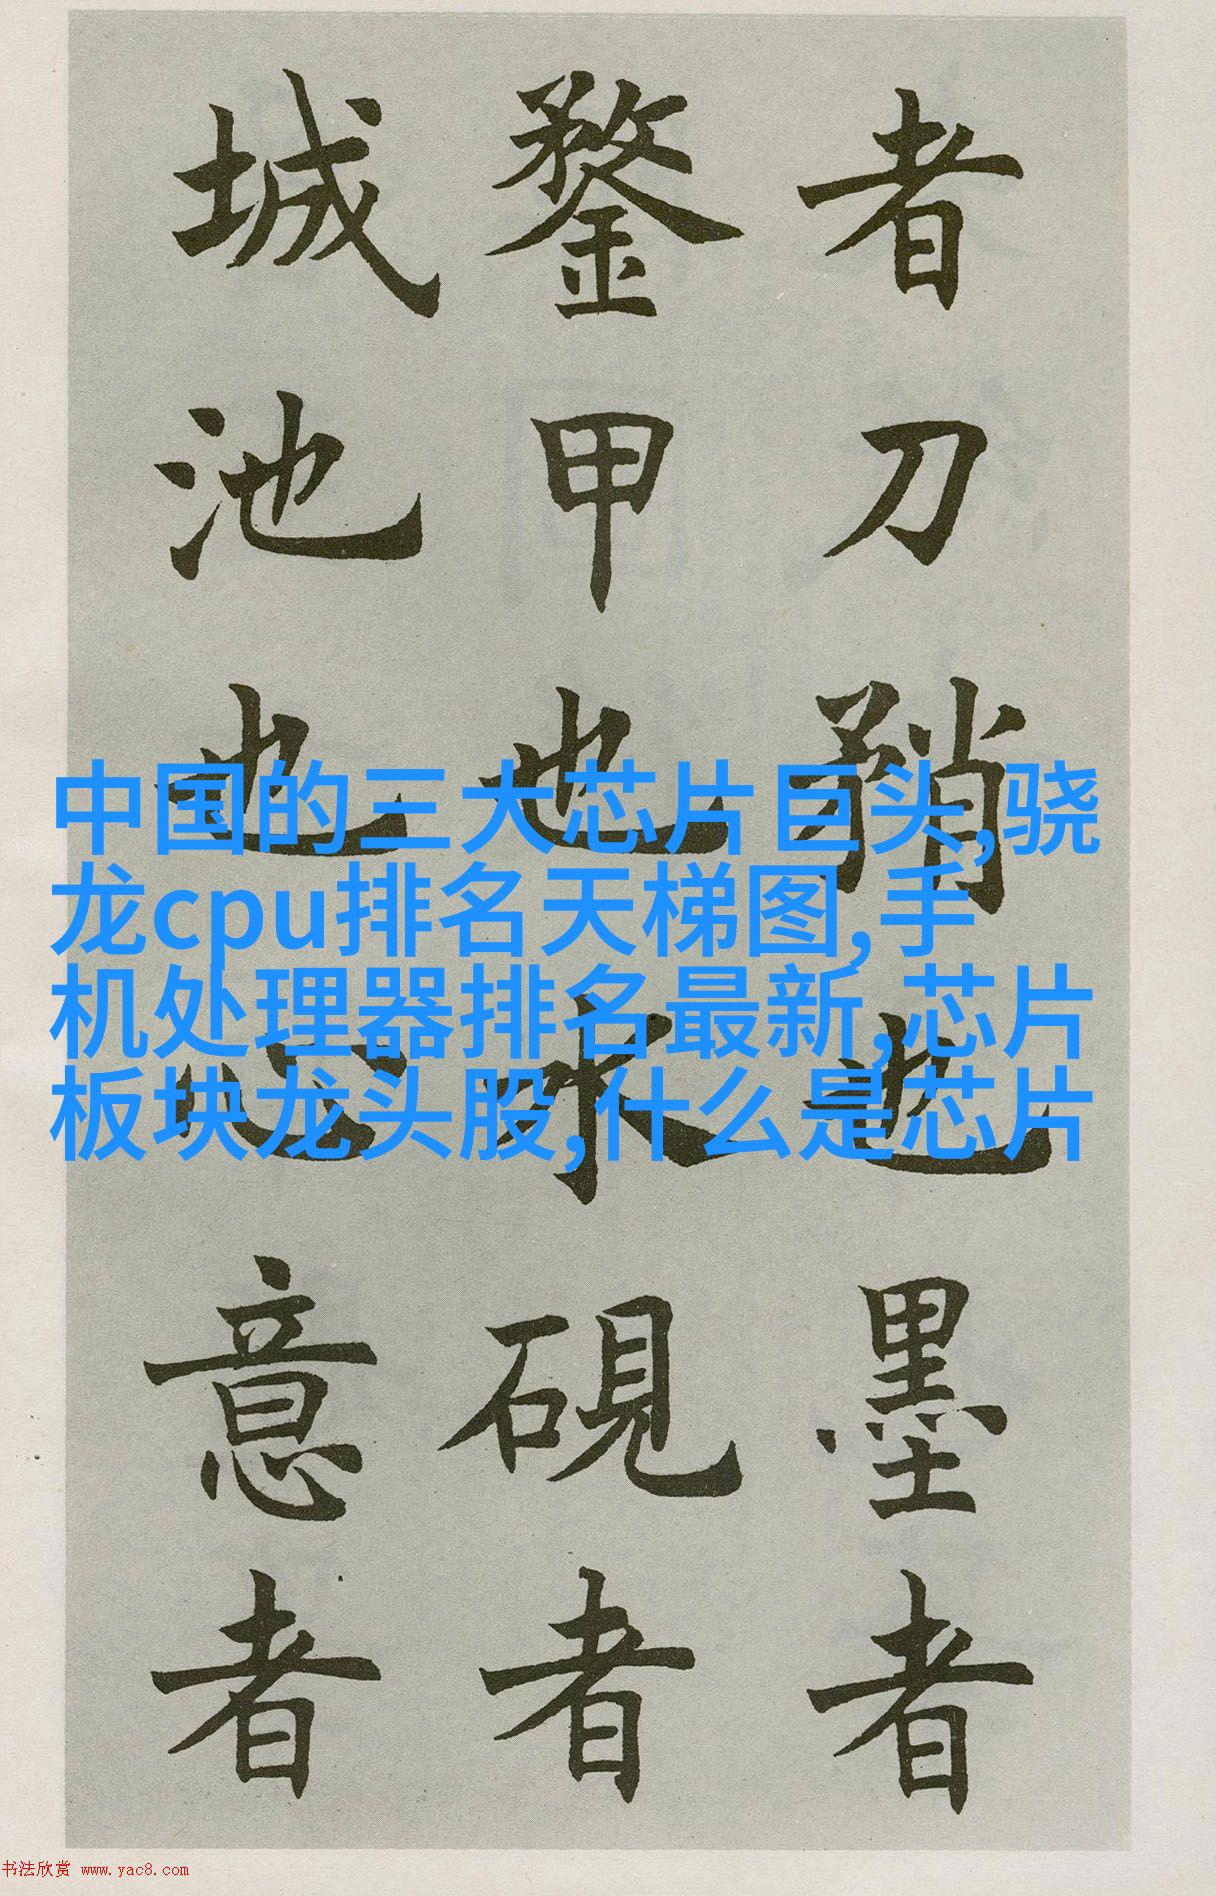 者刀矟也墨者
鍪甲也水硯者
城池也心意者
中国的三大芯片巨头,骁
龙cpu排名天梯图,手
机处理器排名最新,芯片
板块龙头股,什么是芯片
书法欣赏 www.yac8.com